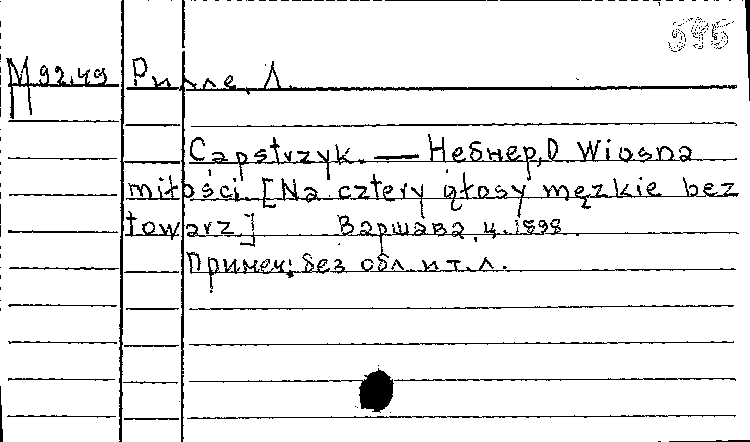 595
М 92.49 Рилле, Л.
Capstrzyk. — Небнер, О Wiosna
miłości. [Na cztery głosy męzkie bez
towarz.] Варшава, ц. 1898.
Примеч: без обл. и т. л.